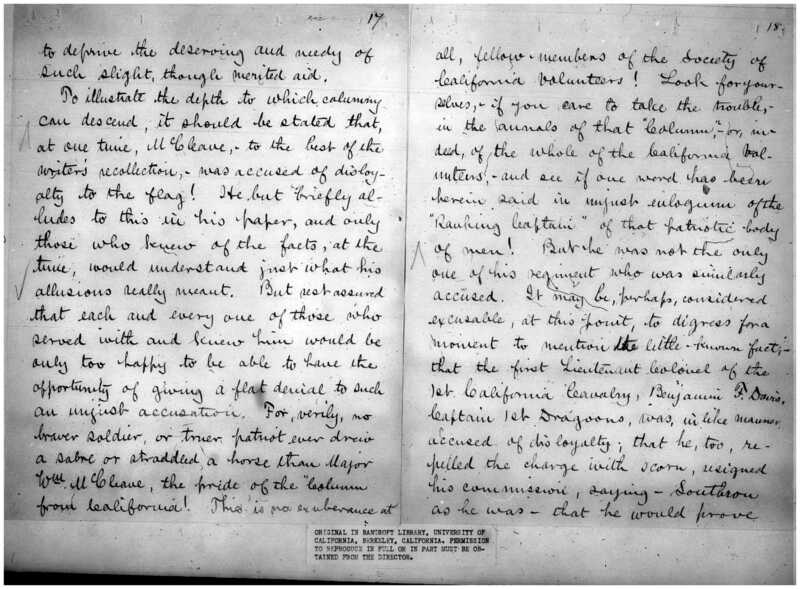 17
to deprive the deserving and needy of
such slight, though merited aid.
To illustrate the depth to which calumny
can descend, it should be stated that,
at one time, McCleave,- to the best of the
writer's recollection,- was accused of disloy-
alty to the flag! He but briefly al-
ludes to this in his paper, and only
those who knew of the facts, at the
time, would understand just what his
allusions really meant. But rest assured
that each and every one of those who
served with and knew him would be
only too happy to be able to have the
opportunity of giving a flat denial to such
an unjust accusation. For, verily, no
braver soldier, or truer patriot ever drew
a sabre or straddled a horse than Major
Wm. McCleave, the pride of the "Column
from California! This is no exuberance at
18
all, fellow-members of the Society of
California Volunteers! Look for your-
selves,- if you care to take the trouble,-
in the annals of that "Column",- or, in-
deed, of the whole of the California Vol-
unteers,- and see if one word has been
herein said in unjust eulogium of the
"Ranking Captain" of that patriotic body
of men! But he was not the only
one of his regiment who was similarly
accused. It may be, perhaps, considered
excusable, at this point, to digress for a
moment to mention the little-known fact,-
that the first Lieutenant Colonel of the
1st California Cavalry, Benjamin F. Davis,
Captain 1st Dragoons, was, in like manner,
accused of disloyalty; that he, too, re-
pelled the charge with scorn, resigned
his commission, saying - Southron
as he was - that he would prove
ORIGINAL IN BANCROFT LIBRARY, UNIVERSITY OF
CALIFORNIA, BERKELEY, CALIFORNIA. PERMISSION
TO REPRODUCE IN FULL OR IN PART MUST BE OB-
TAINED FROM THE DIRECTOR.